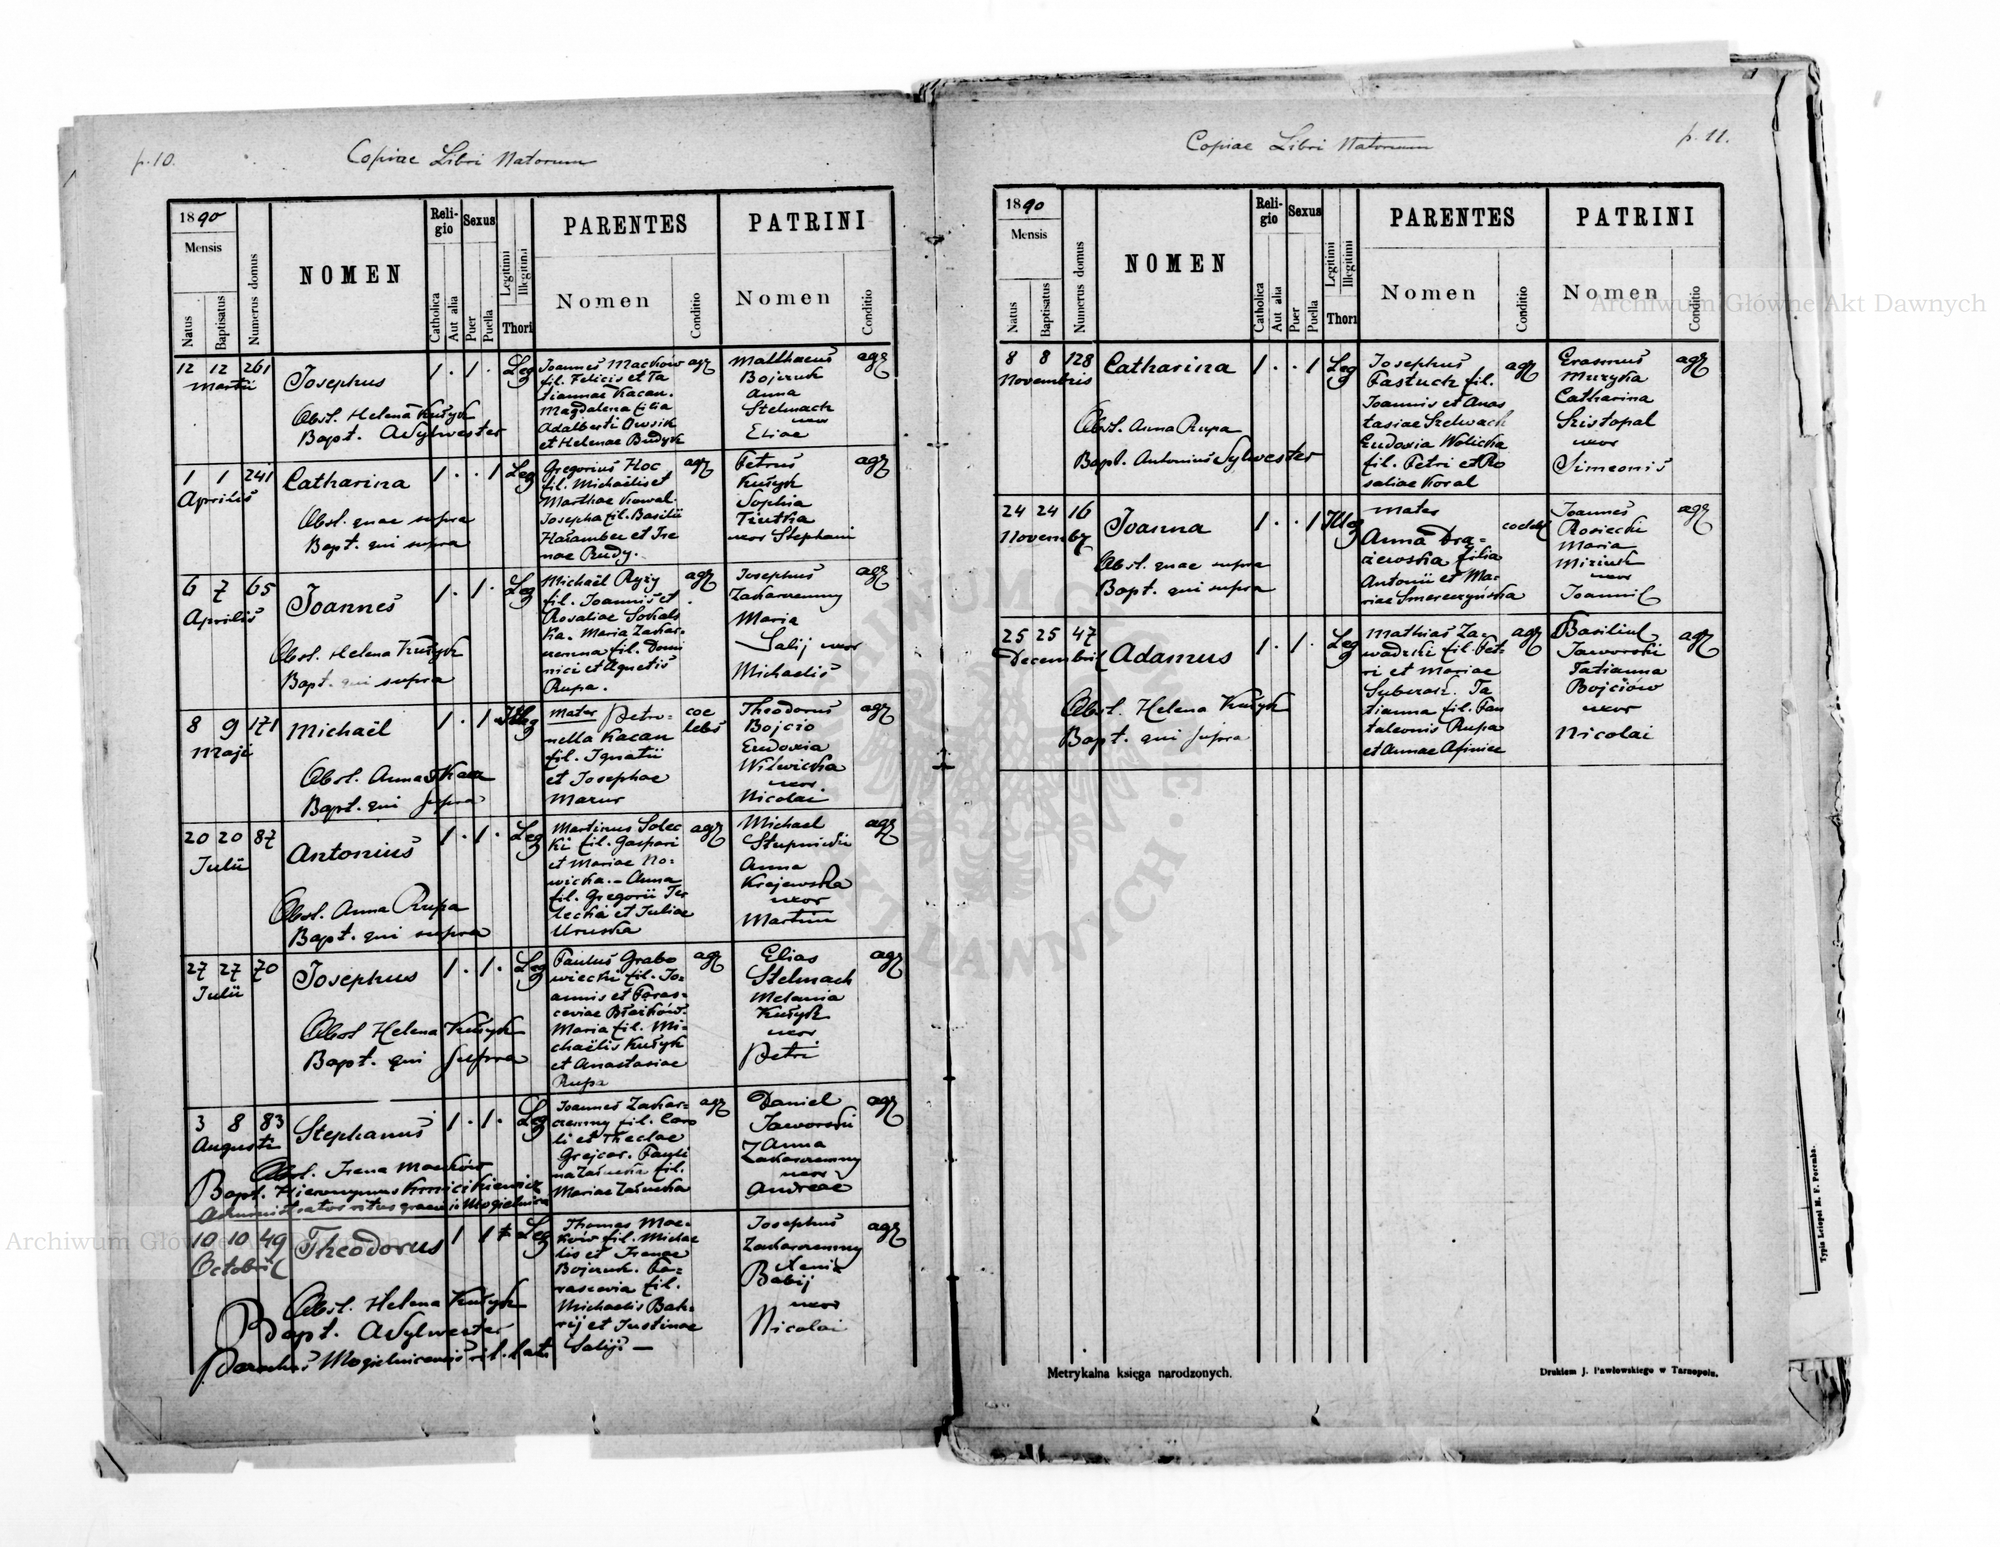 p. 10.
Copiae Libri Natorum
1890
Mensis
Natus
Baptisatus
Numerus domus
NOMEN
Reli-
gio
Catholica
Aut alia
Sexus
Puer
Puella
Legitimi
Illegitimi
Thori
PARENTES
Nomen
Conditio
PATRINI
Nomen
Conditio
12 12 261
Martii
Josephus
Obst. Helena Kułyk
Bapt. A Sylwester
1 . 1 . Leg
Joannes Maćków
fil. Felicis et Ta
tiannae Kacan.
Magdalena filia
Adalberti Owsik
et Helenae Budyk
agr
Matthaeus
Bojczuk
Anna
Stelmach
uxor
Eliae
agr
1 1 241
Aprilis
Catharina
Obst. quae supra
Bapt. qui supra
1 . . 1 Leg
Gregorius Hoc
fil. Michaëlis et
Marthae Kowal.
Josepha fil. Basilii
Hałamber et Ire
nae Rudy.
agr
Petrus
Kułyk
Sophia
Trutka
uxor Stephani
agr
6 7 65
Aprilis
Joannes
Obst. Helena Kułyk
Bapt. qui supra
1 . 1 . Leg
Michaël Ryży
fil. Joannis et
Rosaliae Sokals
ka. Maria Zachar-
czenna fil. Domi
nici et Agnetis
Rupa.
agr
Josephus
Zacharczemny
Maria
Salij uxor
Michaelis
agr
8 9 171
Maji
Michaël
Obst. Anna
Bapt. qui supra
1 . 1 . Illeg
Mater Petro-
nella Kacan
fil. Ignatii
et Josephae
Mazur
coe
lebs
Theodorus
Bojcio
Eudoxia
Witwicka
uxor
Nicolai
agr
20 20 87
Julii
Antonius
Obst. Anna Rupa
Bapt. qui supra
1 . 1 . Leg
Martinus Solec
ki fil. Gaspari
et Mariae No-
wicka. - Anna
fil. Gregorii Ter
lecki et Juliae
Uruska
agr
Michael
Stupnicki
Anna
Krajewska
uxor
Martini
agr
27 27 70
Julii
Josephus
Obst Helena Kułyk
Bapt. qui supra
1 . 1 . Leg
Paulus Grabo
wiecki fil. Jo-
annis et Paras-
ceviae Błażków.
Maria fil. Mi-
chaëlis Kułyk
et Anastasiae
Rupa
agr
Elias
Stelmach
Melania
Kułyk
uxor
Petri
agr
3 8 83
Augusti
Stephanus
Obst. Irena Maćków
Bapt. Hieronymus
Administrator ritus graeci Mogielnica
1 . 1 . Leg
Joannes Zachar-
czemny fil. Caro
li et Theclae
Grejcar. Pauli
na Załucka fil.
Mariae Załucka
agr
Daniel
Jaworski
Anna
Zacharczemny
uxor
Andreae
agr
10 10 49
Octobris
Theodorus
Obst. Helena Kułyk
Bapt. A Sylwester
Parochus Mogielnicensis rit. lati
1 1 Leg
Thomas Mać-
ków fil. Michae
lis et Irenae
Bojczuk. Pa-
rascevia fil.
Michaelis Bab-
rij et Justinae
Salij. -
Josephus
Zacharczemny
Xenia
Babij
uxor
Nicolai
agr
p. 11.
Copiae Libri Natorum
1890
Mensis
Natus
Baptisatus
Numerus domus
NOMEN
Reli-
gio
Catholica
Aut alia
Sexus
Puer
Puella
Legitimi
Illegitimi
Thori
PARENTES
Nomen
Conditio
PATRINI
Nomen
Conditio
8 8 128
Novembris
Catharina
Obst. Anna Rupa
Bapt. Antonius Sylwester
1 . . 1 Leg
Josephus
Pastuch fil.
Joannis et Anas
tasiae Szelwach
Eudoxia Wolicka
fil. Petri et Ro
saliae Koral
agr
Erasmus
Muzyka
Catharina
Szistopal
uxor
Simeonis
agr
24 24 16
Novemb
Joanna
Obst. quae supra
Bapt. qui supra
1 . . 1 Illeg
Mater
Anna Dra-
żewska filia
Antonii et Ma-
riae Smereczyńska
coelebs
Joannes
Rosiecki
Maria
Miziuk
uxor
Joannis
agr
25 25 47
Decembris
Adamus
Obst. Helena Kułyk
Bapt. qui supra
1 . 1 . Leg
Mathias Za-
wadzki fil. Pet-
ri et Mariae
Ta
tianna fil. Pan
taleonis Rupa
et Annae
agr
Basilius
Jaworski
Tatianna
Bojciów
uxor
Nicolai
agr
Metrykalna księga narodzonych.
Drukiem J. Pawłowskiego w Tarnopolu.
Typis Leopol M. F. Poremba.
Archiwum Główne Akt Dawnych
Archiwum Główne Akt Dawnych
ARCHIWUM GŁÓWNE AKT DAWNYCH